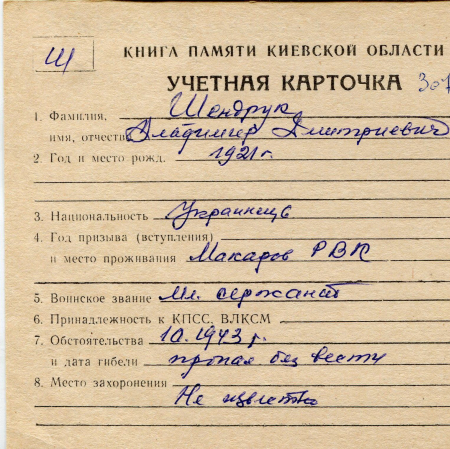 Ш
КНИГА ПАМЯТИ КИЕВСКОЙ ОБЛАСТИ
УЧЕТНАЯ КАРТОЧКА 307
1. Фамилия, Шендрук
имя, отчество Владимир Дмитриевич
2. Год и место рожд. 1921 г.
3. Национальность Украинец
4. Год призыва (вступления)
и место проживания Макаров РВК
5. Воинское звание Мл. сержант
6. Принадлежность к КПСС, ВЛКСМ
7. Обстоятельства 10.1943 г.
и дата гибели пропал без вести
8. Место захоронения
Не известно